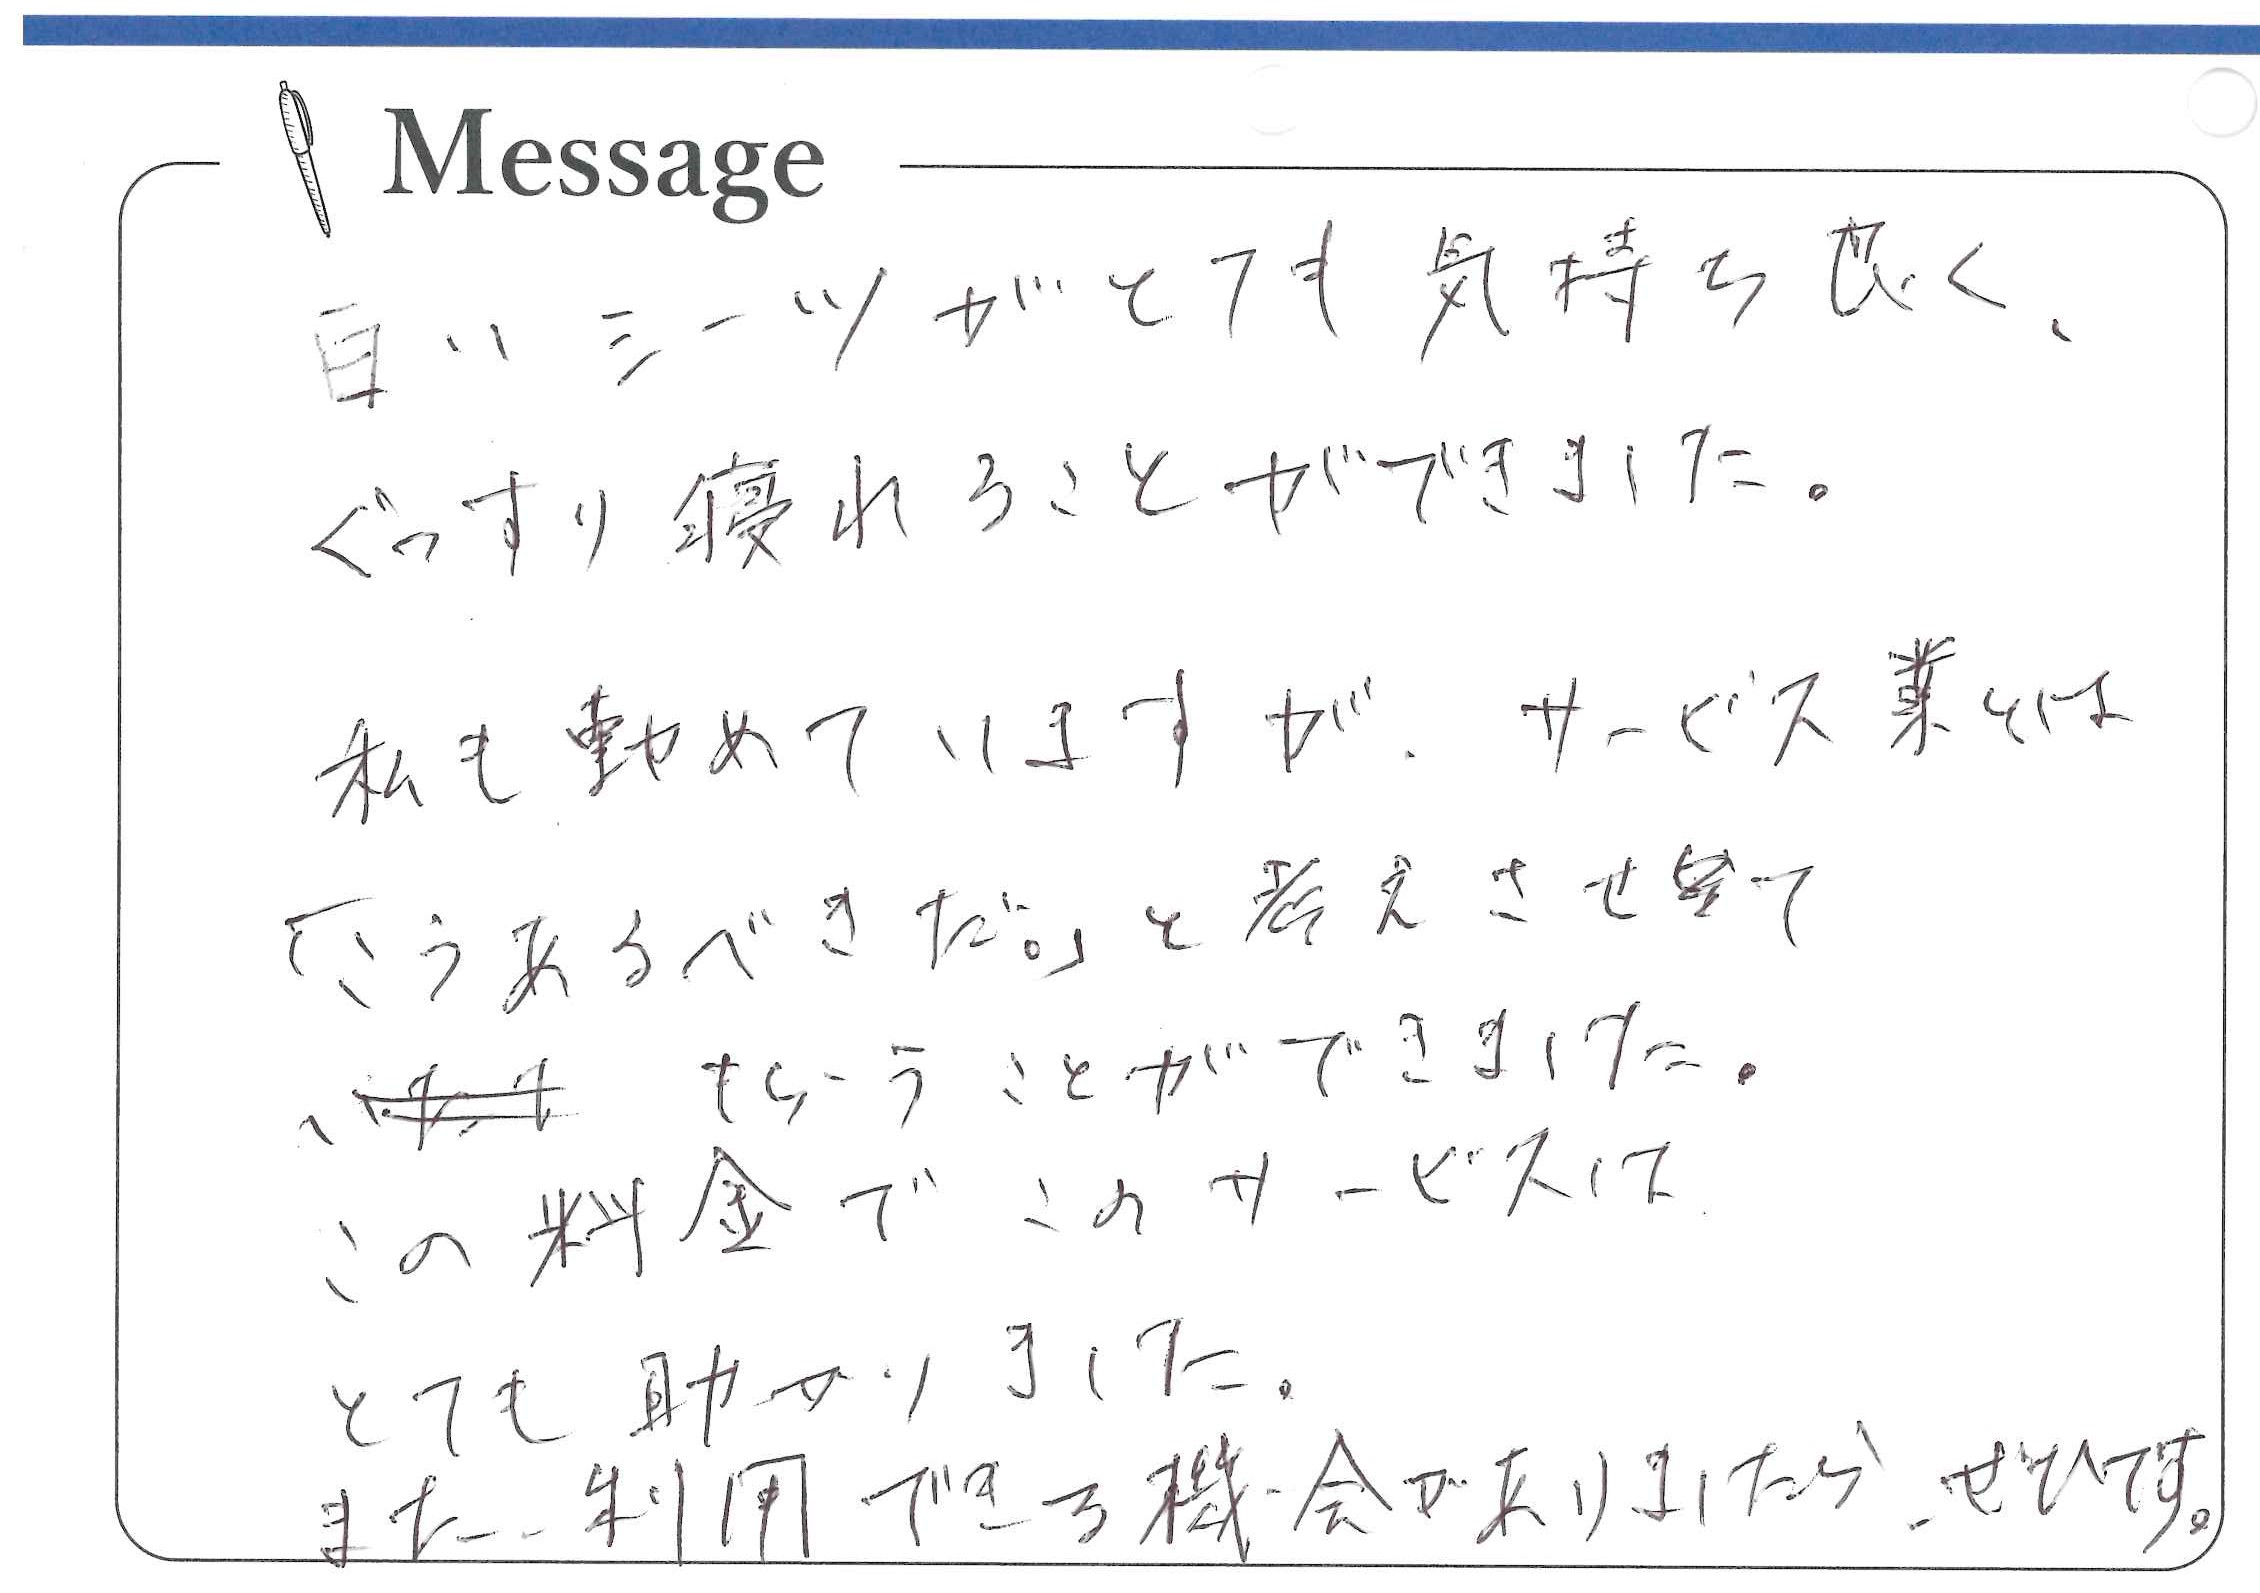 Message
白いシーツがとても気持ち良く、
ぐっすり寝れることができました。
私も勤めていますが、サービス業とは
「こうあるべきだ。」と考えさせて
もらうことができました。
この料金でこのサービスは
とても助かりました。
また利用できる機会がありましたら、ぜひです。